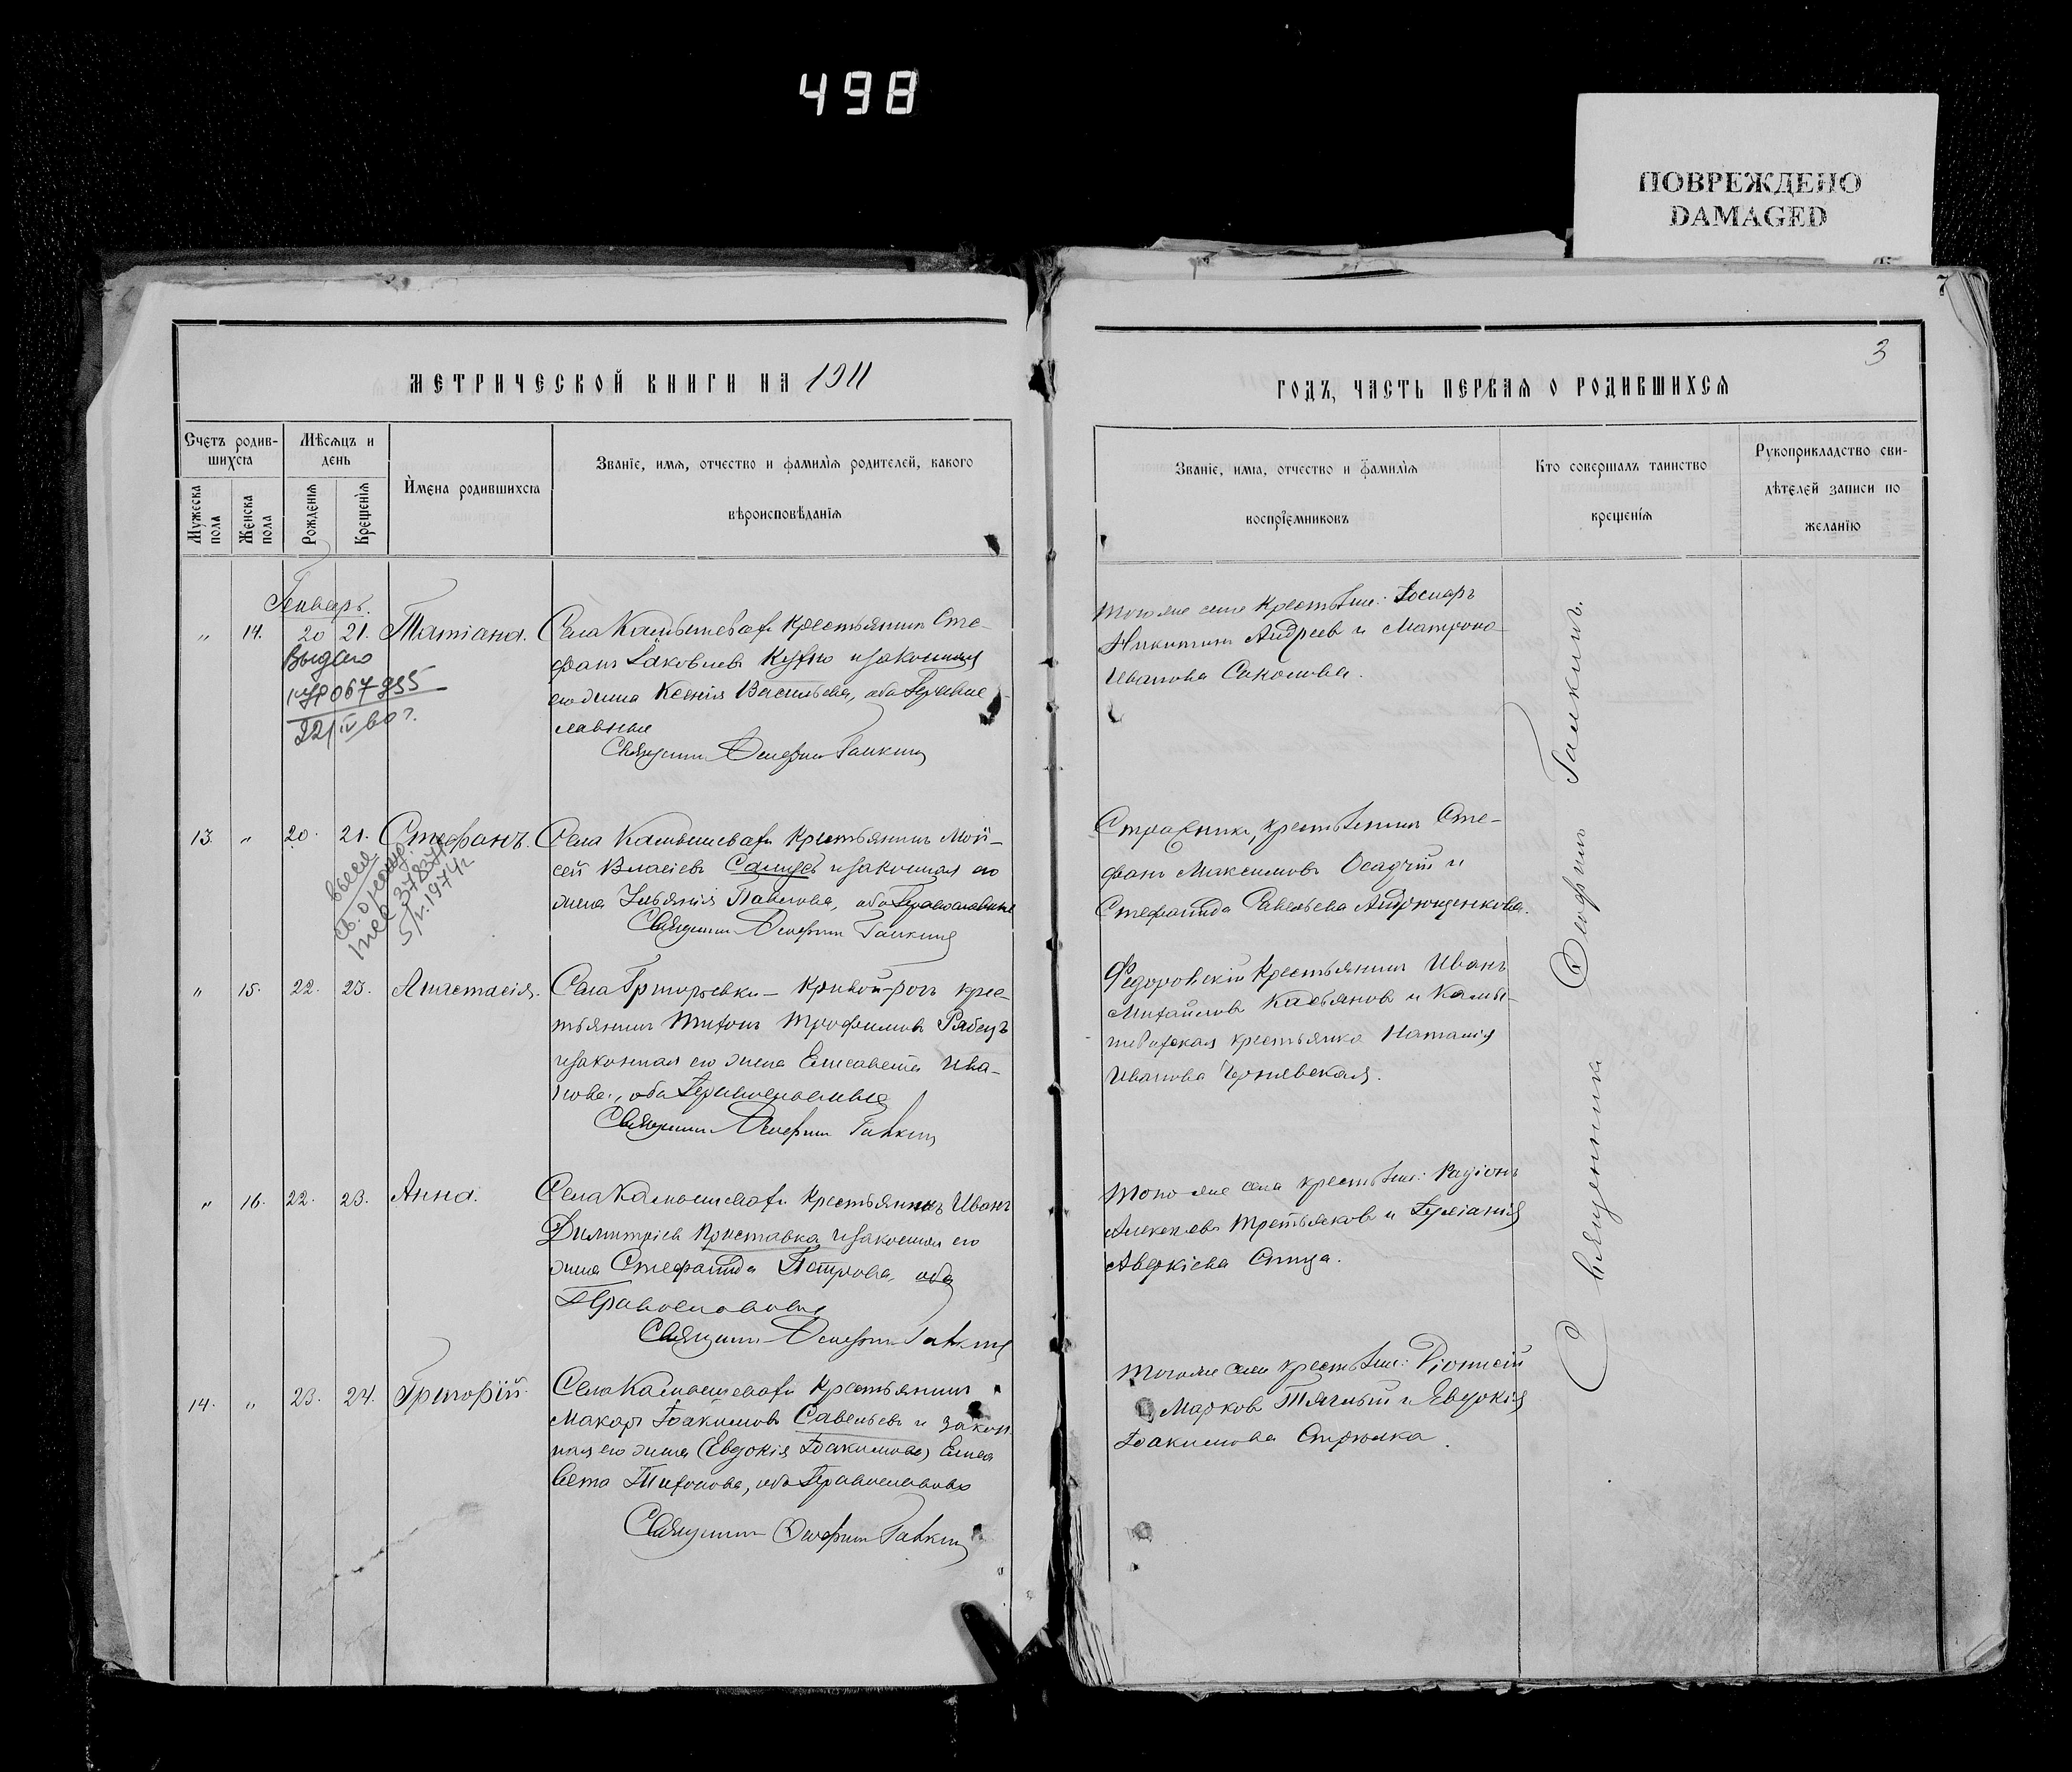 498
ПОВРЕЖДЕНО
DAMAGED
7
3
МЕТРИЧЕСКОЙ КНИГИ НА 1911
ГОДЪ, ЧАСТЬ ПЕРВАЯ О РОДИВШИХСЯ
Счетъ родив-
шихся
Мужеска пола
Женска пола
Мѣсяцъ и
день
Рожденія
Крещенія
Имена родившихся
Званіе, имя, отчество и фамилія родителей, какого
вѣроисповѣданія
Званіе, имя, отчество и фамилія
воспріемниковъ
Кто совершалъ таинство
крещенія
Рукоприкладство сви-
дѣтелей записи по
желанію
Генварь.
" 14. 20 21. Татіана.
Выдано
067955
Села Камышевахи крестьянинъ Сте-
фанъ Іаковлевъ и законная
его жена Ксенія Васильева, оба Право-
славные
Священникъ Онисифоръ Галкинъ
Того же села крестьяне:
Никитинъ Андреев и Матрона
Иванова Соколова.
13. " 20. 21. Стефанъ.
5/V.1974г.
Села Камышевахи крестьянинъ Мой-
сей Власіевъ и законная его
жена Іуліанія Павлова, оба Православные
Священникъ Онисифоръ Галкинъ
Стражникъ, крестьянинъ Сте-
фанъ Максимовъ Осадчій и
Стефанида Савельева Андрющенкова.
" 15. 22. 23. Анастасія.
Села Григорьевки - Кривой-рогъ крес-
тьянинъ Тихонъ Трофимовъ Рябецъ
и законная его жена Елисавета Ива-
нова, оба Православные
Священникъ Онисифоръ Галкинъ
Федоровскій крестьянинъ Иванъ
Михайловъ Касьяновъ и Камы-
шевахская крестьянка Наталія
Иванова Чернявская.
" 16. 22. 23. Анна.
Села Камышевахи крестьянинъ Иванъ
Димитріевъ Приставка и законная его
жена Стефанида Петрова, оба
Православные
Священникъ Онисифоръ Галкинъ
Того же села крестьяне: Радіонъ
Алексѣевъ Третьяковъ и Іуліанія
Авдкіева Спица.
14. " 23. 24. Григорій.
Села Камышевахи крестьянинъ
Макаръ Іоакимовъ Савельевъ и закон
ная его жена (Евдокія Іоакимова) Елиса
вета Тихонова, оба Православные
Священникъ Онисифоръ Галкинъ
Того же села крестьяне: Діонисій
Марковъ Тяглый и Евдокія
Іоакимова Стрюлка.
Священникъ Онисифоръ Галкинъ.